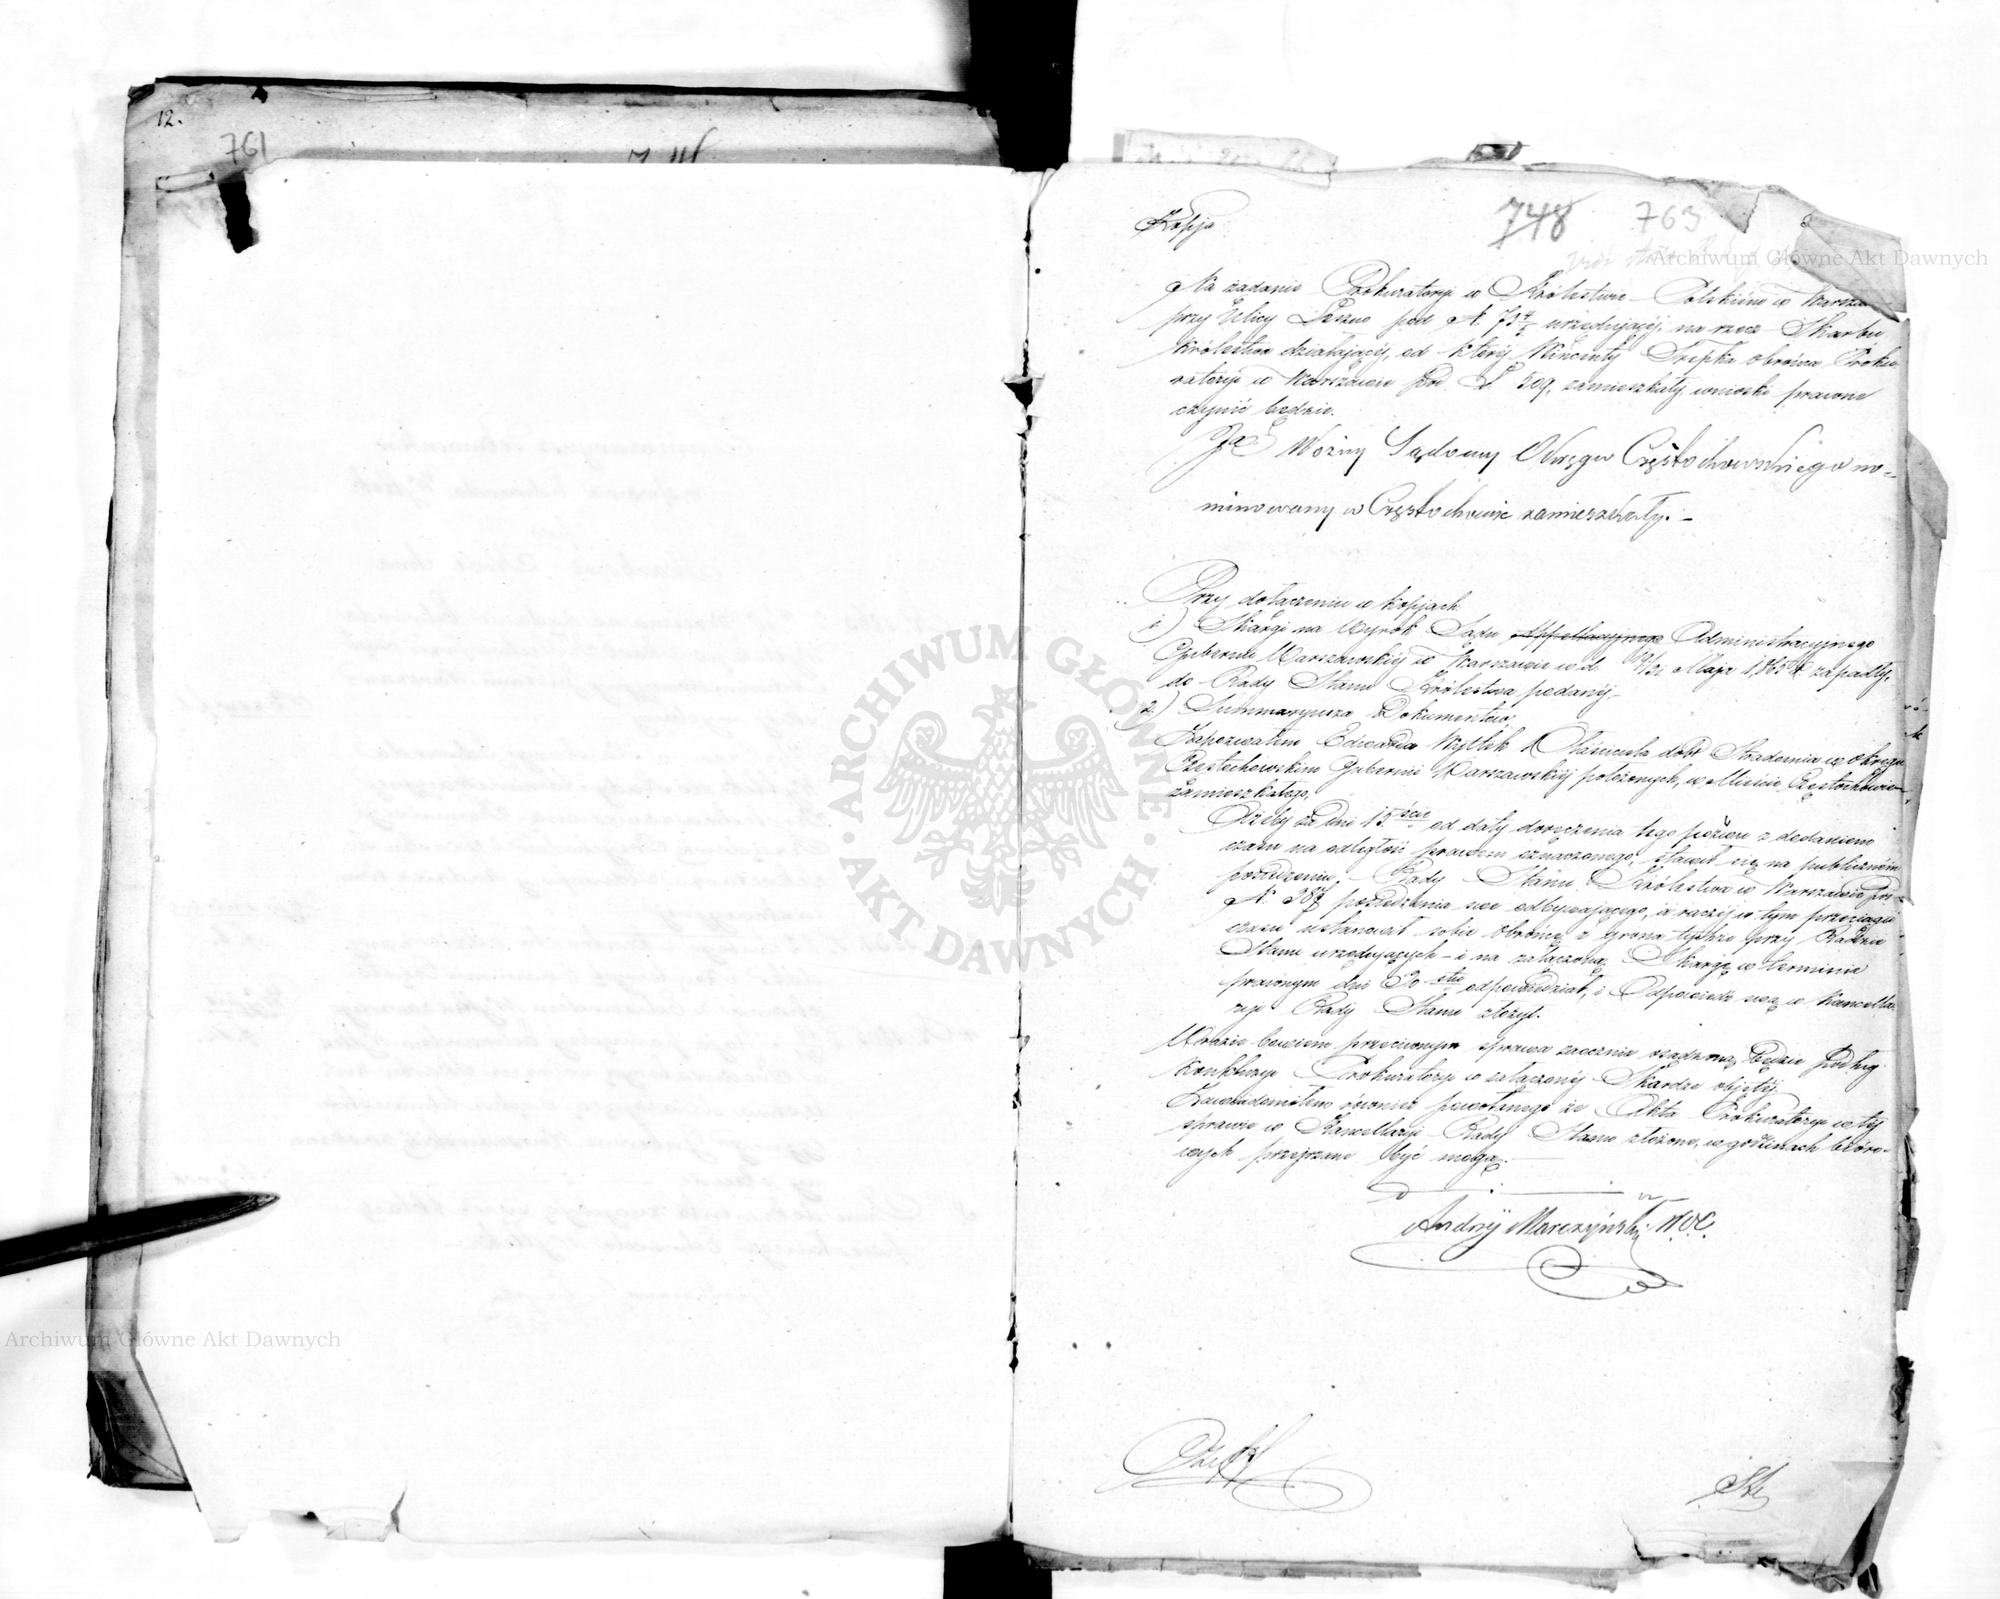 12.
761
Kopja
748 763
Na żądanie Prokuratoryi w Królestwie Polskiém w Warsza
przy Ulicy Leszno pod N. 73 4/5 urzędującéj, na rzecz Skarbu
Królestwa działającéj, od któréj Wincenty Trepka obrońca Proku
ratoryi w Warszawie pod N 509, zamieszkały, wnioski prawne
czynić będzie.
Ja Woźny Sądowy Okręgu Częstochowskiego no-
minowany w Częstochowie zamieszkały. –
Przy dołączeniu w kopjach
1) Skargi na Wyrok Sądu Appellacyjnego Administracyjnego
Gubernii Warszawskiéj w Warszawie w d. 19/31 Maja 1865 r. zapadły,
do Rady Stanu Królestwa podanéj.
2.) Summaryusza Dokumentów,
Zapozwałem Edwarda Wyttek Właściciela dóbr Stradomia w okręgu
Częstochowskim Gubernii Warszawskiéj położonych, w Mieście Częstochowie
zamieszkałego,
Ażeby za dni 15ście od daty doręczenia tego pozwu z dodaniem
czasu na odległość prawem oznaczonego, stawił się na publiczném
posiedzeniu Rady Stanu Królestwa w Warszawie pod
N. 387 posiedzenia swe odbywającego, a raczéj w tym przeciągu
czasu ustanowił sobie Obrońcę z grona tychże przy Radzie
Stanu urzędujących – i na załączoną Skargę w terminie
prawnym dni 30stu odpowiedział, i Odpowiedź swą w Kancella
ryi Rady Stanu złożył.
W razie bowiem przeciwnym sprawa zaocznie osądzoną będzie podług
Konkluzyi Prokuratoryi w załączonéj Skardze objętéj.
Zawiadomiłem również pozwanego że Akta Prokuratoryi w téj
sprawie w Kancellaryi Rady Stanu złożone, w godzinach biuro-
wych przejrzane być mogą.
Andrzéj Marczyński W.O.C.
Archiwum Główne Akt Dawnych
ARCHIWUM GŁÓWNE AKT DAWNYCH
Archiwum Główne Akt Dawnych